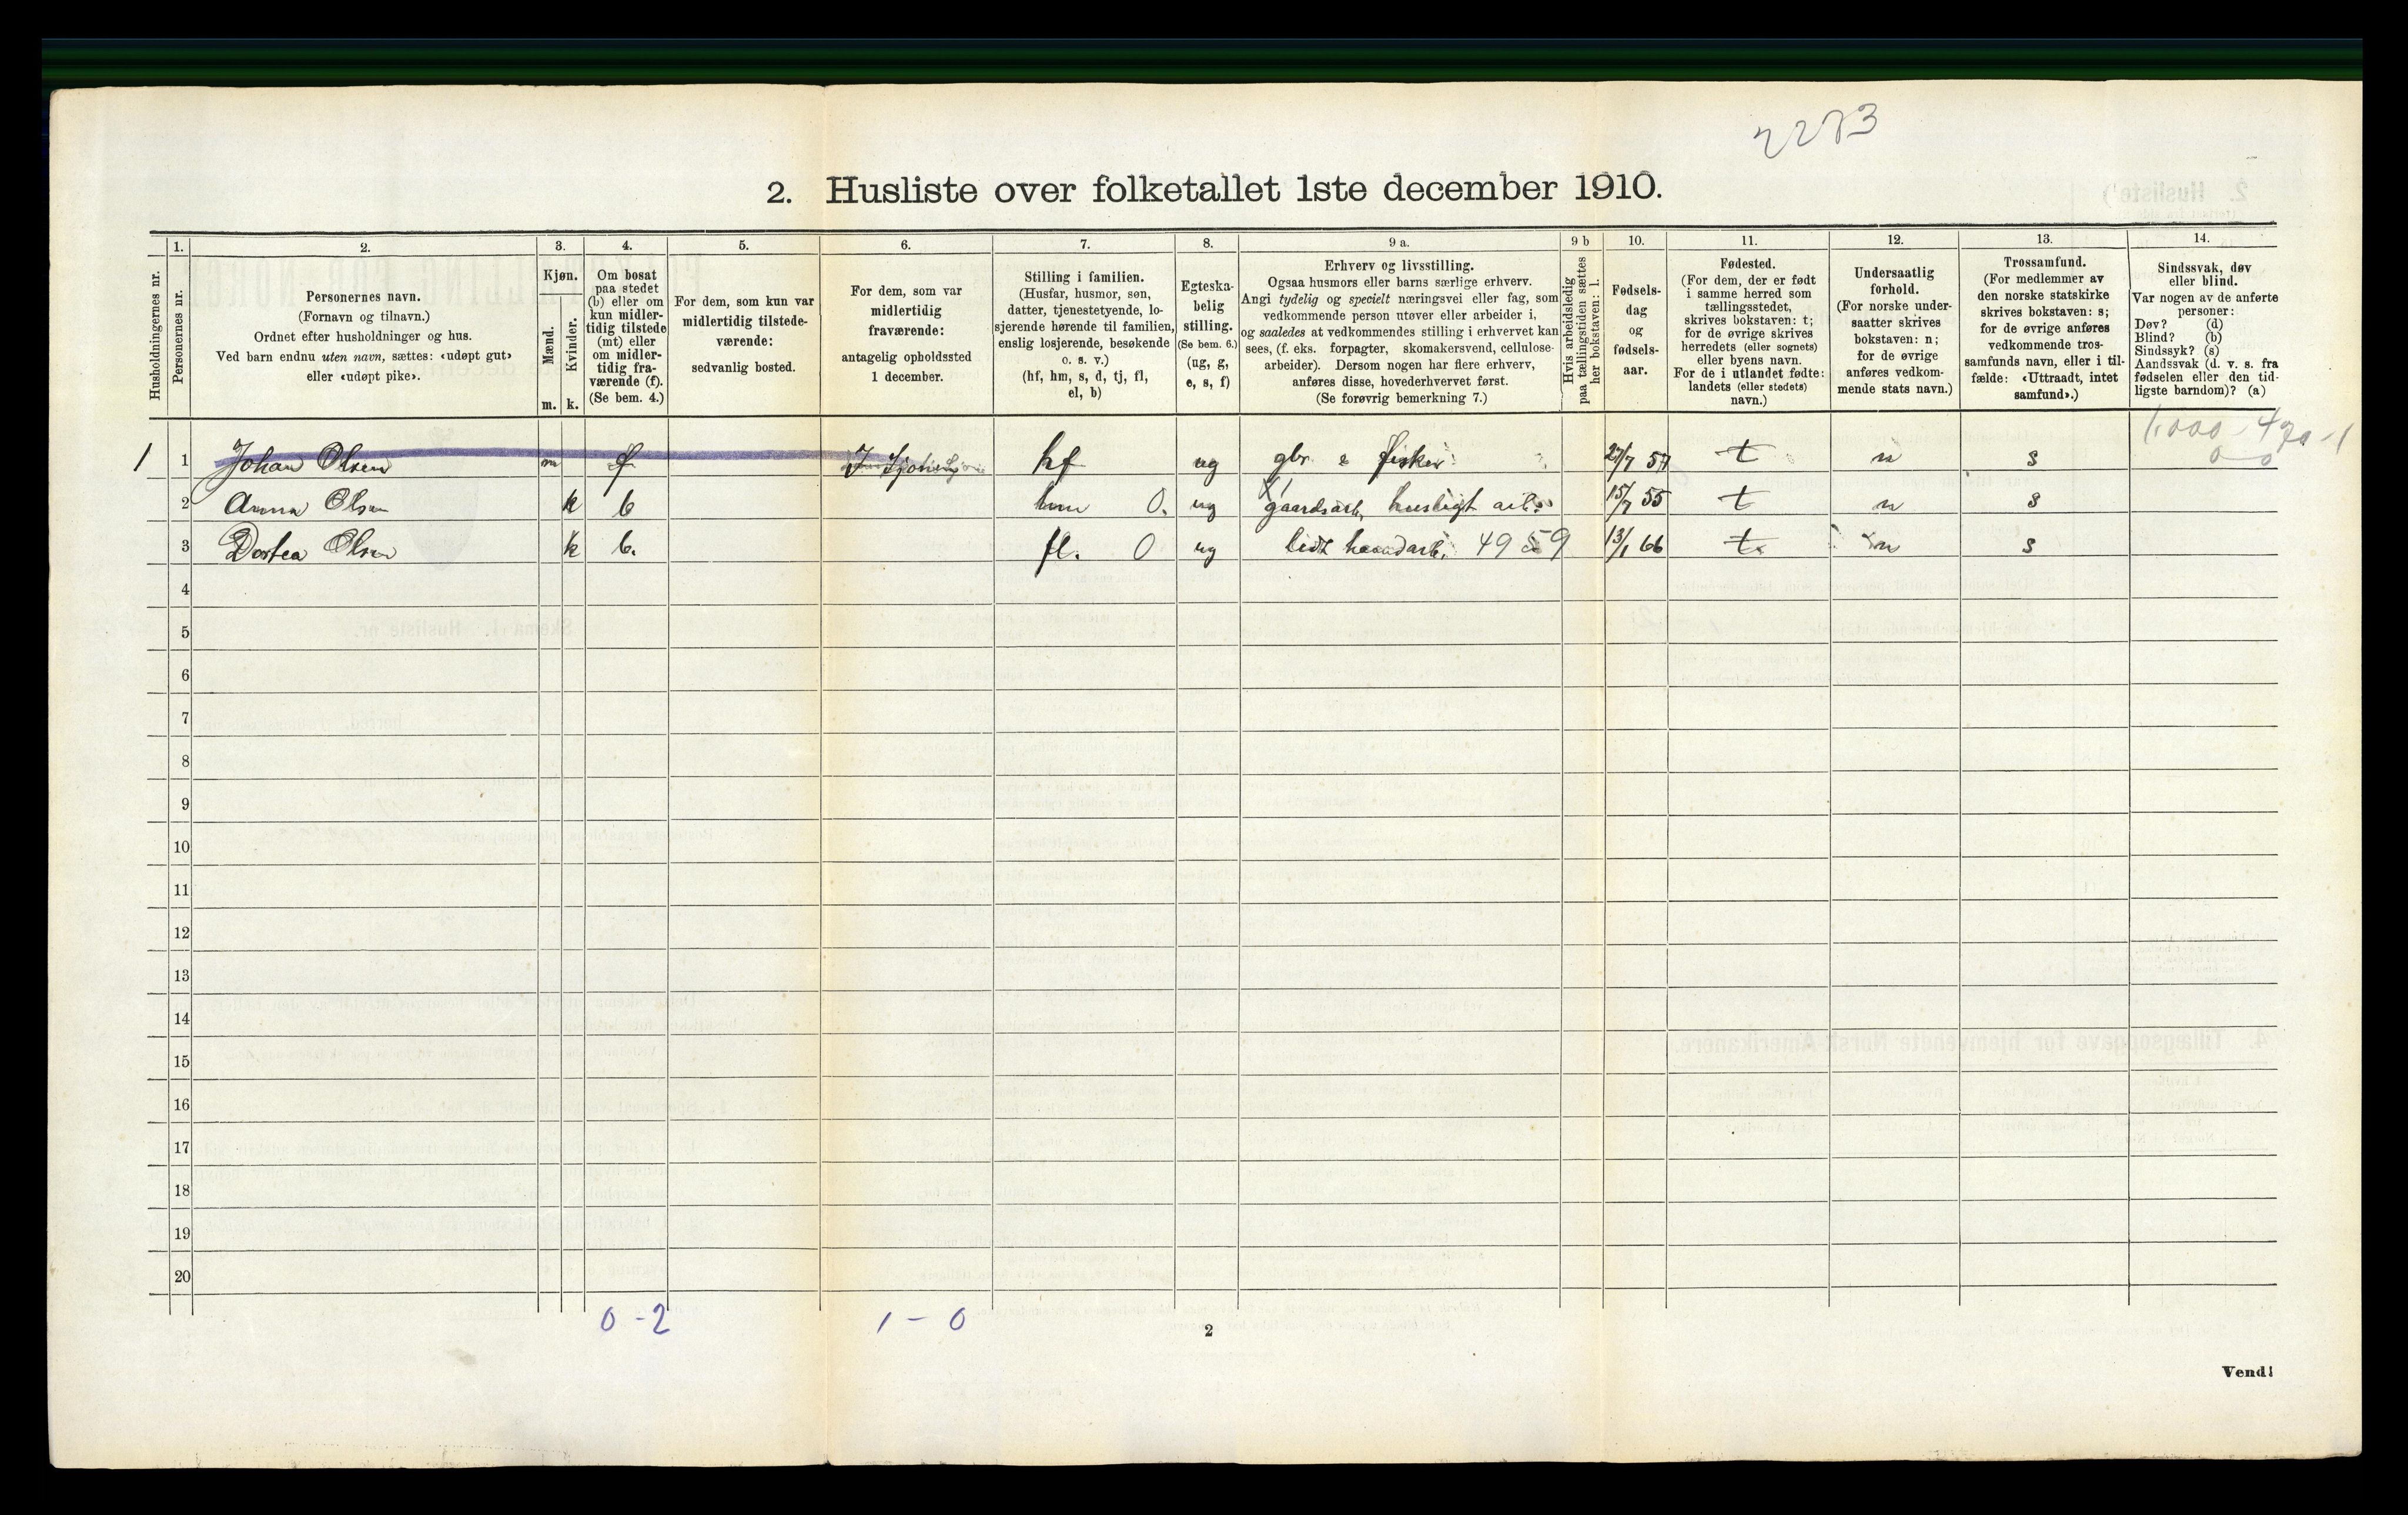 2283
2. Husliste over folketallet 1ste december 1910.
Husholdningernes nr.
1.
Personernes nr.
2.
Personernes navn.
(Fornavn og tilnavn.)
Ordnet efter husholdninger og hus.
Ved barn endnu uten navn, sættes: «udøpt gut»
eller «udøpt pike».
3.
Kjøn.
Mænd.
Kvinder.
m. k.
4.
Om bosat
paa stedet
(b) eller om
kun midler-
tidig tilstede
(mt) eller
om midler-
tidig fra-
værende (f).
(Se bem. 4.)
5.
For dem, som kun var
midlertidig tilstede-
værende:
sedvanlig bosted.
6.
For dem, som var
midlertidig
fraværende:
antagelig opholdssted
1 december.
7.
Stilling i familien.
(Husfar, husmor, søn,
datter, tjenestetyende, lo-
sjerende hørende til familien,
enslig losjerende, besøkende
o. s. v.)
(hf, hm, s, d, tj, fl,
el, b)
8.
Egteska-
belig
stilling.
(Se bem. 6.)
(ug, g,
e, s, f)
9 a.
Erhverv og livsstilling.
Ogsaa husmors eller barns særlige erhverv.
Angi tydelig og specielt næringsvei eller fag, som
vedkommende person utøver eller arbeider i,
og saaledes at vedkommendes stilling i erhvervet kan
sees, (f. eks. forpagter, skomakersvend, cellulose-
arbeider). Dersom nogen har flere erhverv,
anføres disse, hovederhvervet først.
(Se forøvrig bemerkning 7.)
9 b
Hvis arbeidsledig
paa tællingstiden sættes
her bokstaven: l.
10.
Fødsels-
dag
og
fødsels-
aar.
11.
Fødested.
(For dem, der er født
i samme herred som
tællingsstedet,
skrives bokstaven: t;
for de øvrige skrives
herredets (eller sognets)
eller byens navn.
For de i utlandet fødte:
landets (eller stedets)
navn.)
12.
Undersaatlig
forhold.
(For norske under-
saatter skrives
bokstaven: n;
for de øvrige
anføres vedkom-
mende stats navn.)
13.
Trossamfund.
(For medlemmer av
den norske statskirke
skrives bokstaven: s;
for de øvrige anføres
vedkommende tros-
samfunds navn, eller i til-
fælde: «Uttraadt, intet
samfund».)
14.
Sindssvak, døv
eller blind.
Var nogen av de anførte
personer:
Døv? (d)
Blind? (b)
Sindssyk? (s)
Aandssvak (d. v. s. fra
fødselen eller den tid-
ligste barndom)? (a)
1 1 Johan Olsen m f hf ug gbr & fisker 27/7 57 t n s
2 Anna Olsen k b hm 0. ug gaardsarb, husligt arb. 15/7 55 t n s
3 Dortea Olsen k b. fl. 0 ug lidt haandarb. 13/1 66 t n s
4
5
6
7
8
9
10
11
12
13
14
15
16
17
18
19
20
0 - 2 1 - 0
2
Vend!